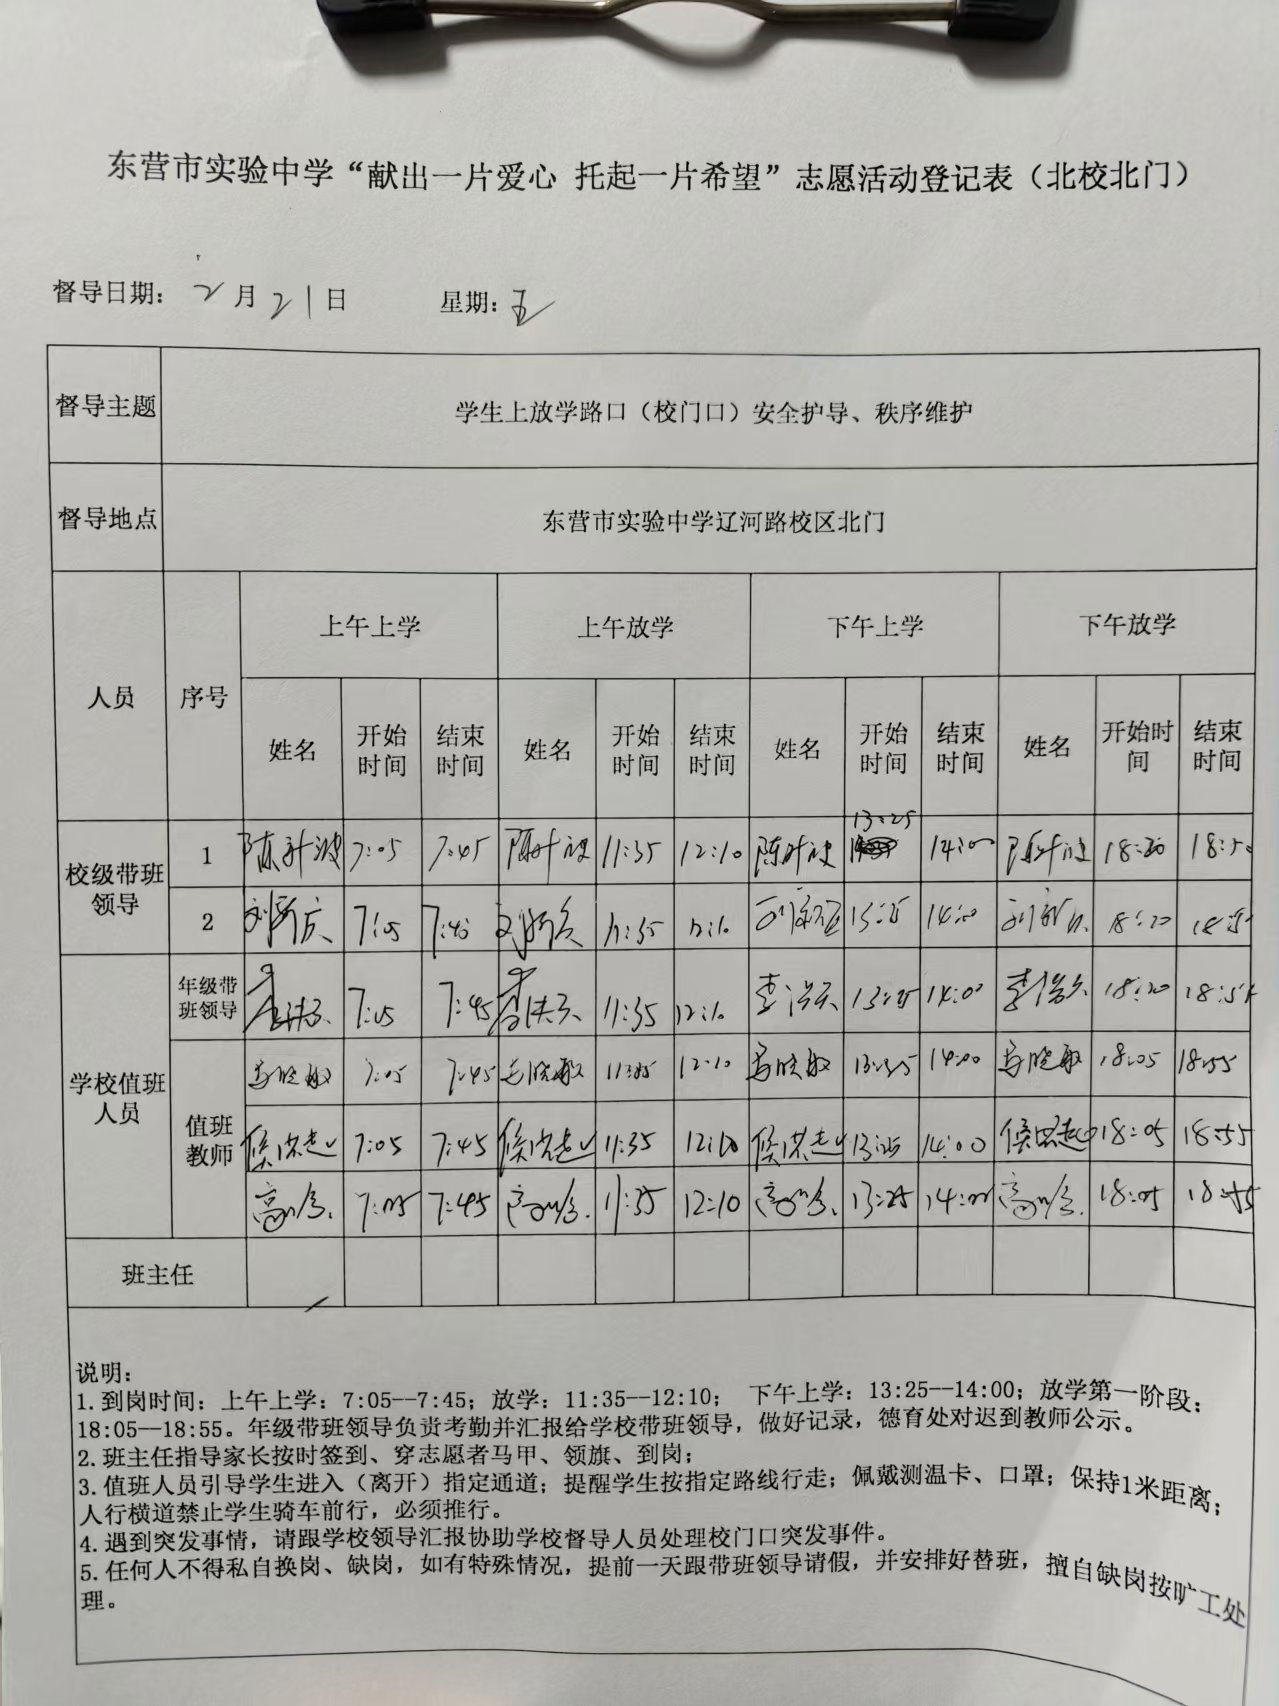 东营市实验中学“献出一片爱心 托起一片希望”志愿活动登记表（北校北门）
督导日期： 2月21日 星期：五
督导主题 学生上放学路口（校门口）安全护导、秩序维护
督导地点 东营市实验中学辽河路校区北门
人员 序号 上午上学 上午放学 下午上学 下午放学
姓名 开始时间 结束时间 姓名 开始时间 结束时间 姓名 开始时间 结束时间 姓名 开始时间 结束时间
校级带班领导 1 7:05 7:45 11:35 12:10 13:25 14:00 18:20 18:50
2 7:05 7:45 11:35 12:10 13:25 14:00 18:20
学校值班人员 年级带班领导 7:05 7:45 11:35 12:10 李洪云 13:25 14:00 18:20
值班教师 7:05 7:45 11:35 12:10 13:25 14:00 18:05 18:55
7:05 7:45 11:35 12:10 13:25 14:00 18:05 18:55
7:05 7:45 11:35 12:10 13:25 14:00 18:05 18:55
班主任
说明：
1.到岗时间：上午上学：7:05--7:45；放学：11:35--12:10； 下午上学：13:25--14:00；放学第一阶段：
18:05--18:55。年级带班领导负责考勤并汇报给学校带班领导，做好记录，德育处对迟到教师公示。
2.班主任指导家长按时签到、穿志愿者马甲、领旗、到岗；
3.值班人员引导学生进入（离开）指定通道；提醒学生按指定路线行走；佩戴测温卡、口罩；保持1米距离；
人行横道禁止学生骑车前行，必须推行。
4.遇到突发事情，请跟学校领导汇报协助学校督导人员处理校门口突发事件。
5.任何人不得私自换岗、缺岗，如有特殊情况，提前一天跟带班领导请假，并安排好替班，擅自缺岗按旷工处
理。